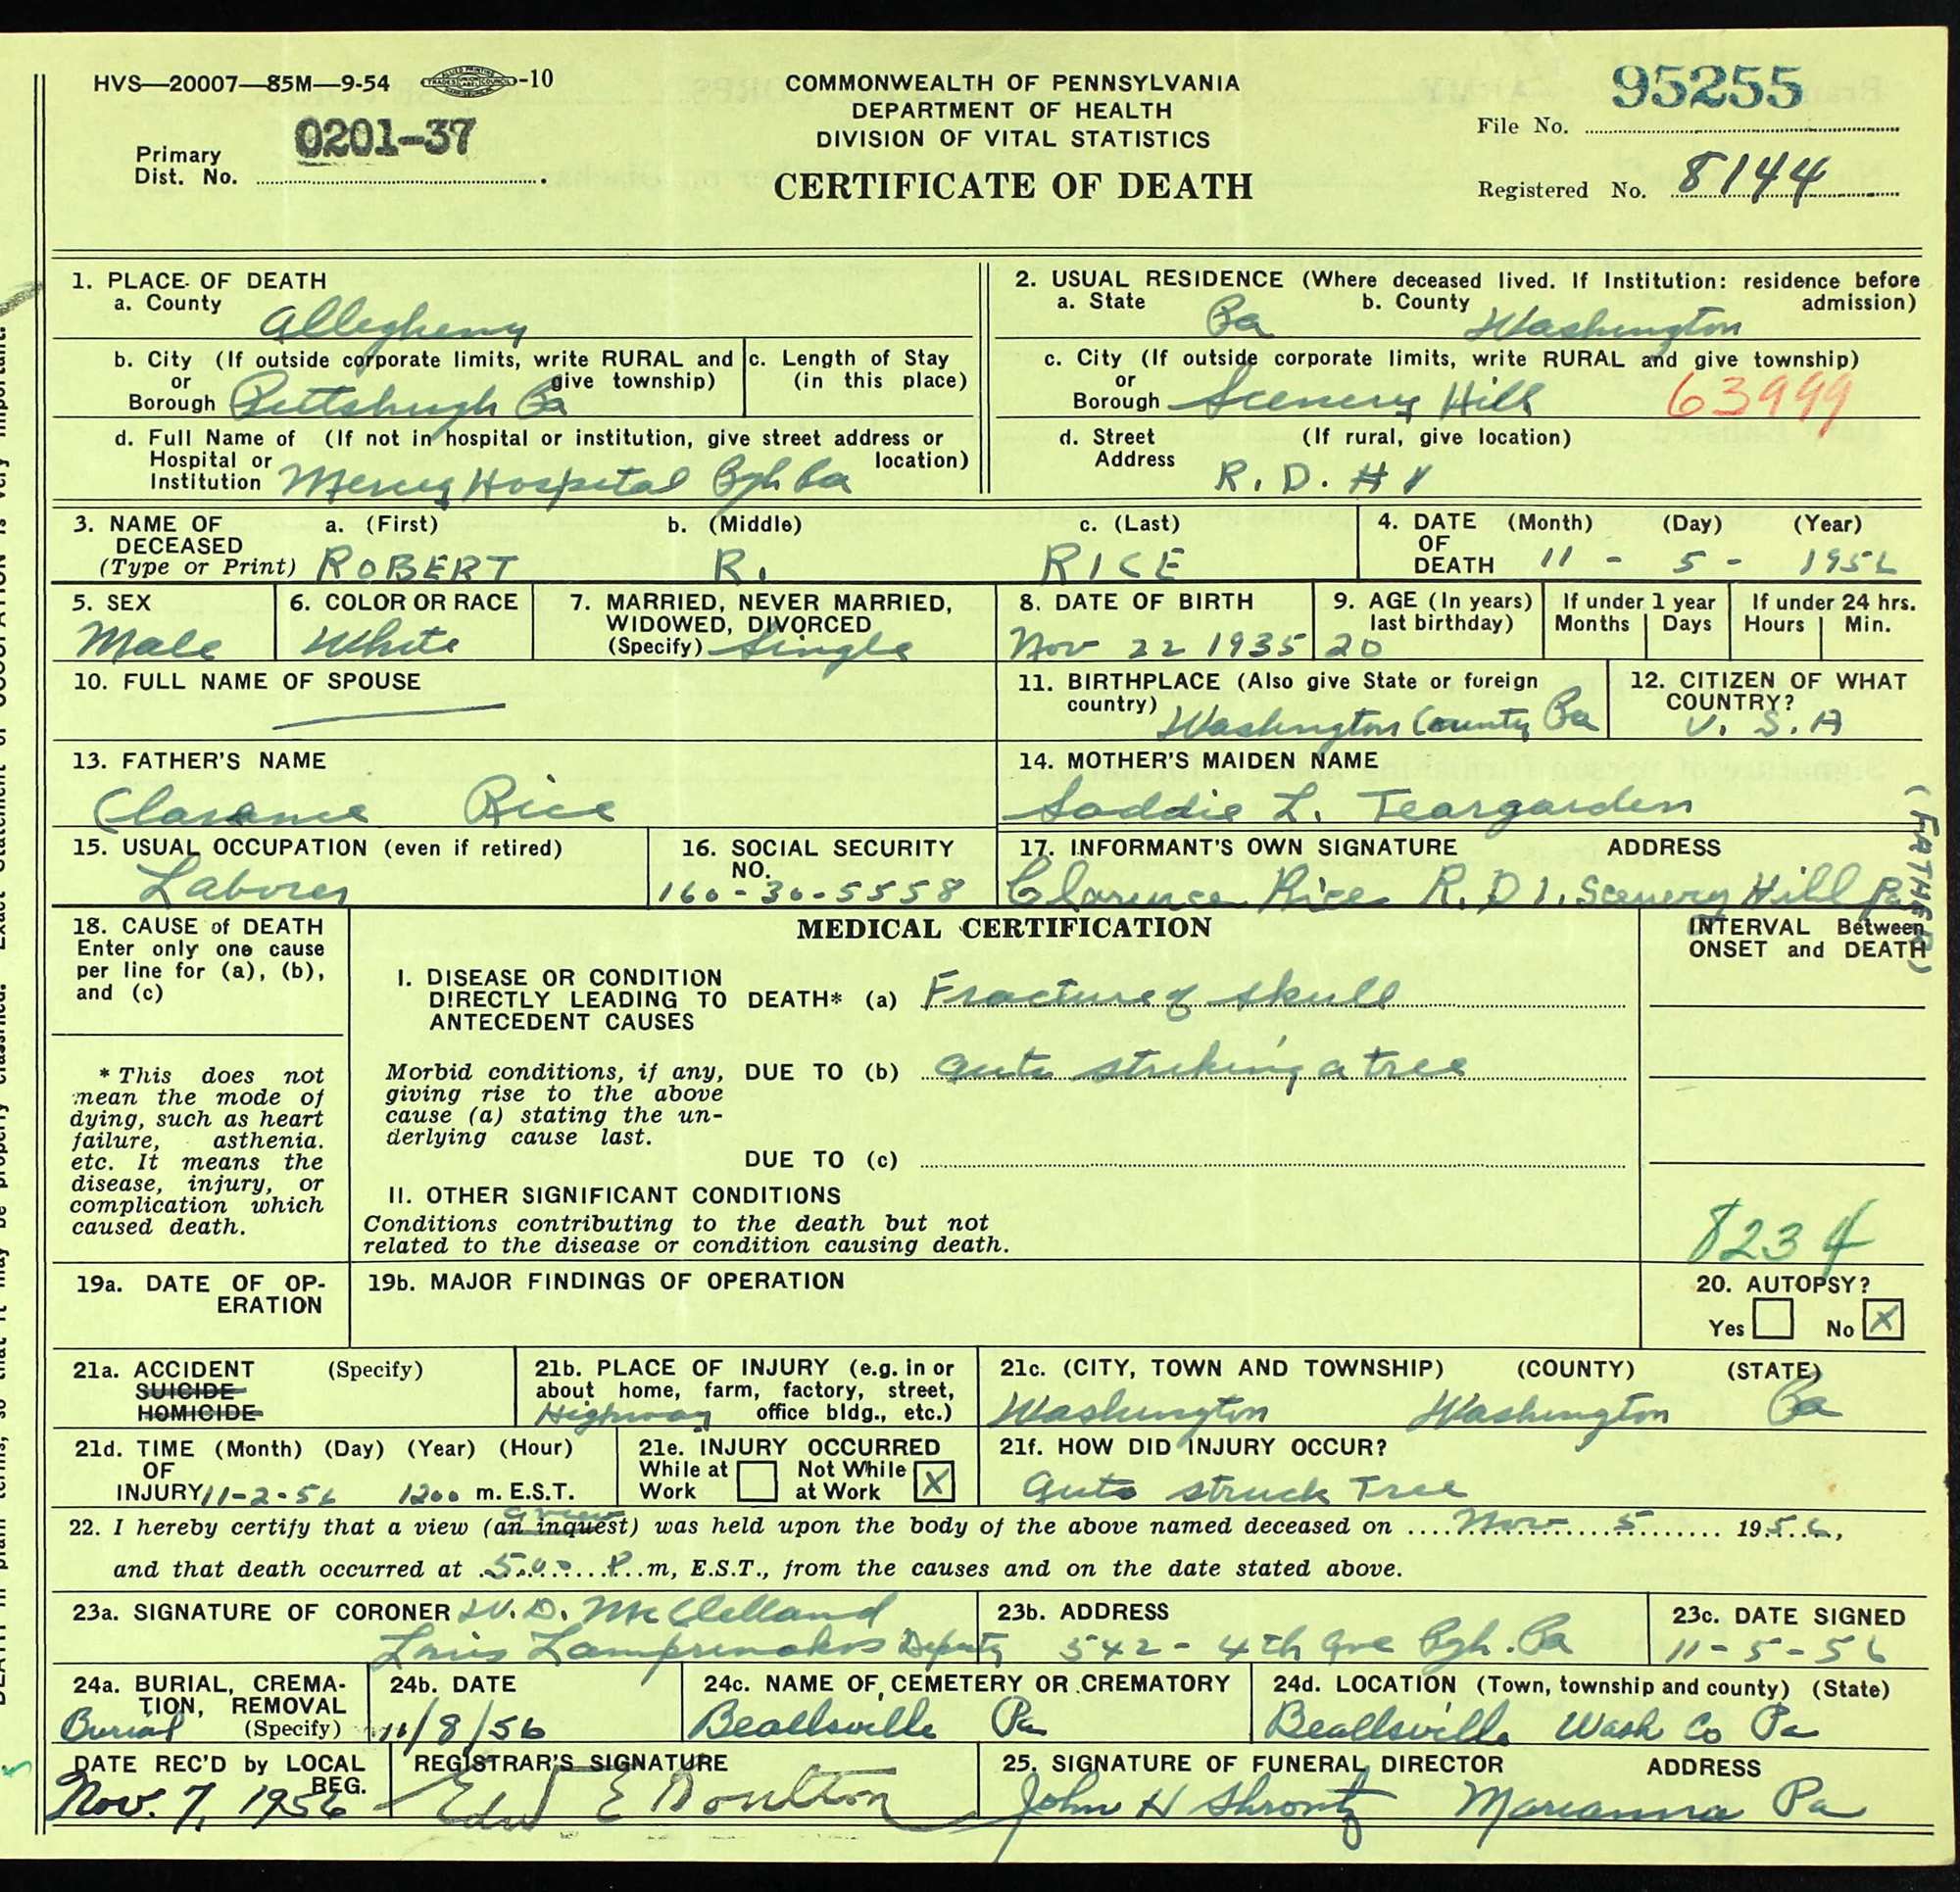 HVS—20007—85M—9-54 -10
COMMONWEALTH OF PENNSYLVANIA
DEPARTMENT OF HEALTH
DIVISION OF VITAL STATISTICS
CERTIFICATE OF DEATH
95255
File No.
Primary
Dist. No. 0201-37
Registered No. 8144
1. PLACE OF DEATH
a. County Allegheny
2. USUAL RESIDENCE (Where deceased lived. If Institution: residence before admission)
a. State Pa b. County Washington
b. City (If outside corporate limits, write RURAL and give township)
or
Borough Pittsburgh Pa
c. Length of Stay
(in this place)
c. City (If outside corporate limits, write RURAL and give township)
or
Borough Scenery Hill 63999
d. Full Name of (If not in hospital or institution, give street address or location)
Hospital or
Institution Mercy Hospital Pgh Pa
d. Street (If rural, give location)
Address R. D. # 1
3. NAME OF DECEASED a. (First) b. (Middle) c. (Last)
(Type or Print) ROBERT R. RICE
4. DATE OF DEATH (Month) (Day) (Year)
11 - 5 - 1956
5. SEX
Male
6. COLOR OR RACE
White
7. MARRIED, NEVER MARRIED,
WIDOWED, DIVORCED
(Specify) Single
8. DATE OF BIRTH
Nov 22 1935
9. AGE (In years)
last birthday)
20
If under 1 year
Months Days
If under 24 hrs.
Hours Min.
10. FULL NAME OF SPOUSE
11. BIRTHPLACE (Also give State or foreign
country) Washington County Pa
12. CITIZEN OF WHAT
COUNTRY?
U. S. A
13. FATHER'S NAME
Clarence Rice
14. MOTHER'S MAIDEN NAME
Saddie L. Teargarden
15. USUAL OCCUPATION (even if retired)
Laborer
16. SOCIAL SECURITY
NO.
160-30-5558
17. INFORMANT'S OWN SIGNATURE ADDRESS
Clarence Rice R. D 1. Scenery Hill Pa
(FATHER)
18. CAUSE of DEATH
Enter only one cause
per line for (a), (b),
and (c)
MEDICAL CERTIFICATION
INTERVAL Between
ONSET and DEATH
I. DISEASE OR CONDITION
DIRECTLY LEADING TO DEATH* (a) Fracture of skull
ANTECEDENT CAUSES
* This does not
mean the mode of
dying, such as heart
failure, asthenia.
etc. It means the
disease, injury, or
complication which
caused death.
Morbid conditions, if any, DUE TO (b) auto striking a tree
giving rise to the above
cause (a) stating the un-
derlying cause last.
DUE TO (c)
II. OTHER SIGNIFICANT CONDITIONS
Conditions contributing to the death but not
related to the disease or condition causing death.
8234
19a. DATE OF OP-
ERATION
19b. MAJOR FINDINGS OF OPERATION
20. AUTOPSY?
Yes No X
21a. ACCIDENT (Specify)
SUICIDE
HOMICIDE
21b. PLACE OF INJURY (e.g. in or
about home, farm, factory, street,
office bldg., etc.)
Highway
21c. (CITY, TOWN AND TOWNSHIP) (COUNTY) (STATE)
Washington Washington Pa
21d. TIME (Month) (Day) (Year) (Hour)
OF
INJURY 11-2-56 1200 m. E.S.T.
21e. INJURY OCCURRED
While at Work Not While at Work X
21f. HOW DID INJURY OCCUR?
Auto struck Tree
a view
22. I hereby certify that a view (an inquest) was held upon the body of the above named deceased on Nov 5 1956,
and that death occurred at 5.00 P. m, E.S.T., from the causes and on the date stated above.
23a. SIGNATURE OF CORONER W. D. McClelland
Deputy
23b. ADDRESS
542 - 4th Ave Pgh. Pa
23c. DATE SIGNED
11-5-56
24a. BURIAL, CREMA-
TION, REMOVAL
(Specify)
Burial
24b. DATE
11/8/56
24c. NAME OF CEMETERY OR CREMATORY
Beallsville Pa
24d. LOCATION (Town, township and county) (State)
Beallsville Wash Co Pa
DATE REC'D by LOCAL
REG.
Nov. 7, 1956
REGISTRAR'S SIGNATURE
25. SIGNATURE OF FUNERAL DIRECTOR ADDRESS
John H Shrontz Marianna Pa